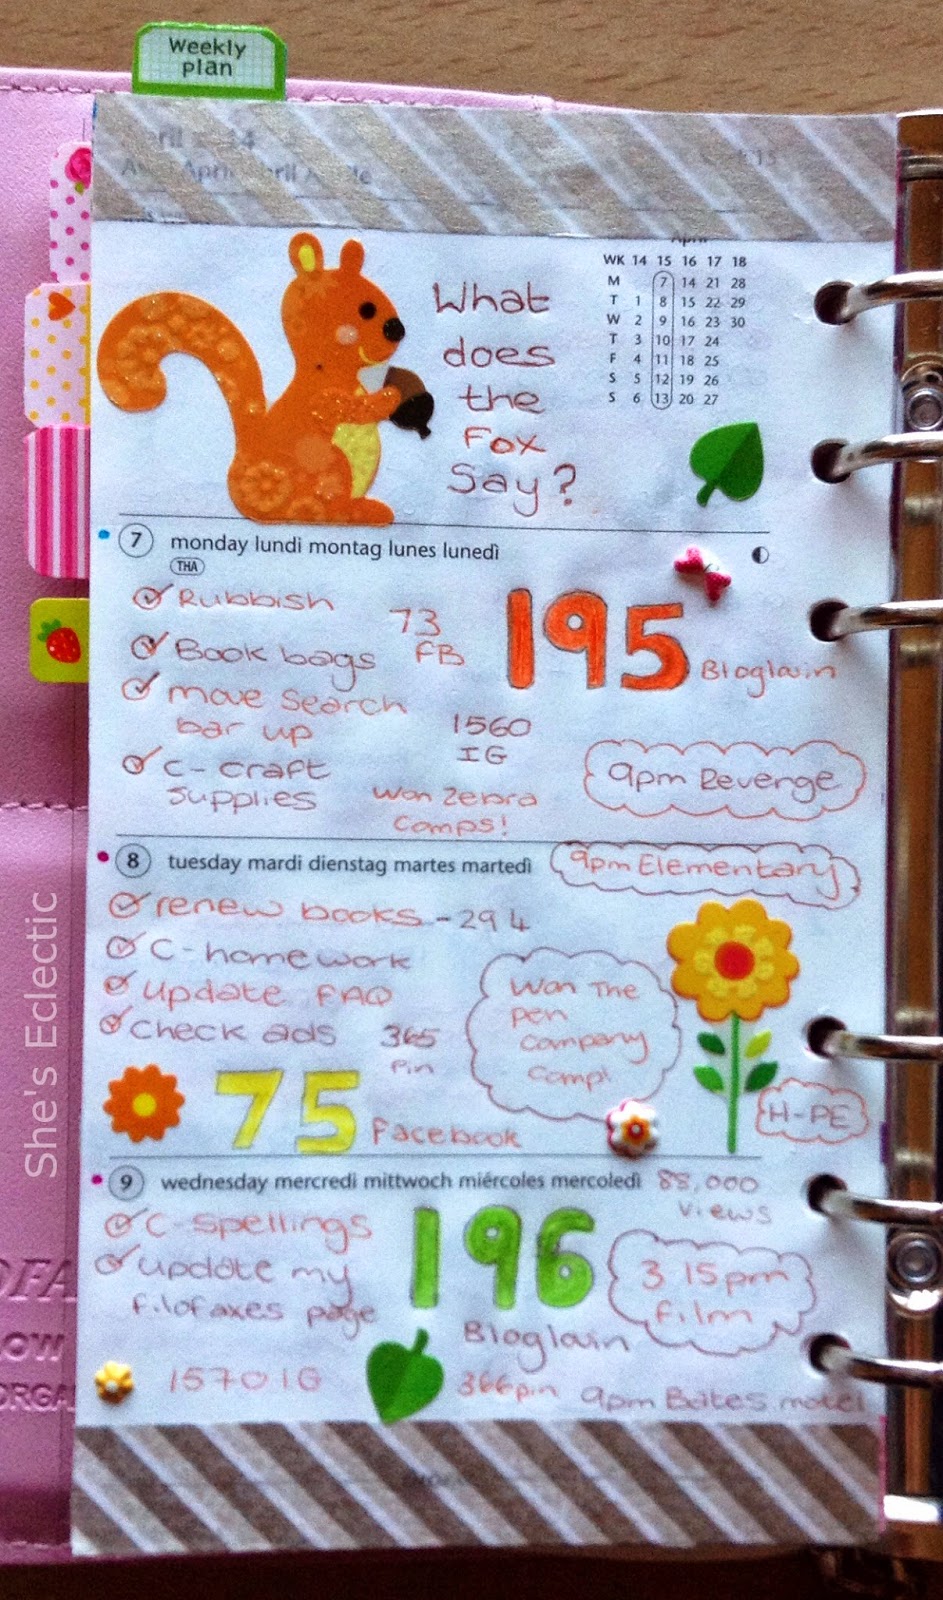 Weekly
plan
April
WK 14 15 16 17 18
M 7 14 21 28
T 1 8 15 22 29
W 2 9 16 23 30
T 3 10 17 24
F 4 11 18 25
S 5 12 19 26
S 6 13 20 27
What
does
the
Fox
Say?
7 monday lundi montag lunes lunedì
THA
Rubbish
Book bags
move search
bar up
C- craft
supplies
73
FB
195
Bloglovin
1560
IG
9pm Revenge
Won Zebra
Comps!
8 tuesday mardi dienstag martes martedì
9pm Elementary
renew books - 294
C- homework
update FAQ
check ads
365
Pin
Won The
pen
company
comp!
75 Facebook
H-PE
9 wednesday mercredi mittwoch miércoles mercoledì
88,000
views
C- spellings
update my
filofaxes page
196
Bloglovin
3 15pm
film
1570 IG
366 pin
9pm Bates motel
She's Eclectic